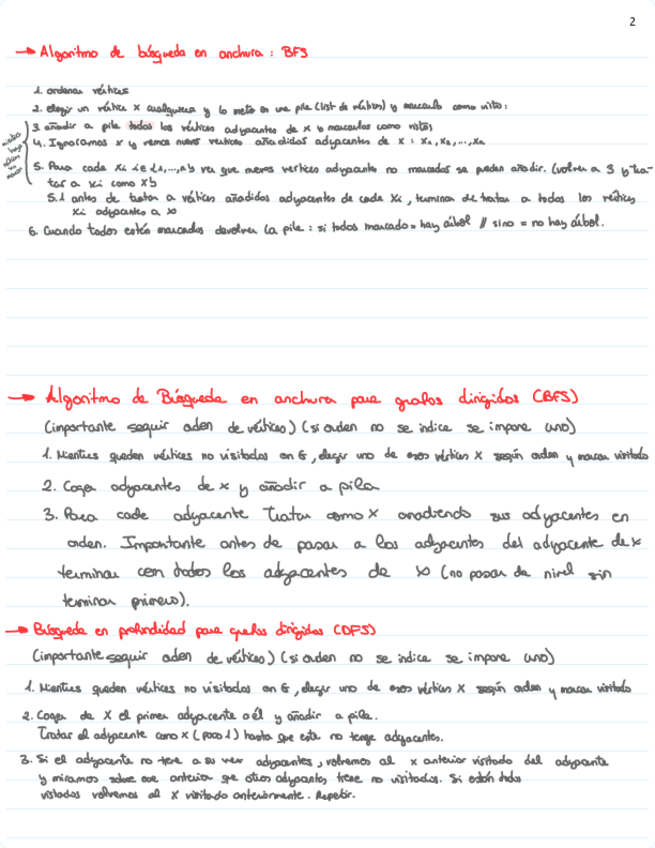 2
→ Algoritmo de búsqueda en anchura : BFS
1. ordenar vértices
2. elegir un vértice x cualquiera y lo meto en una pila (list de vértices) y marcarlo como visto:
3. añadir a pila todos los vértices adyacentes de x y marcarlos como vistos
4. Ignoramos x y vemos nuevos vertices añadidos adyacentes de x : x₁, x₂, ..., xₙ
mientras haya vértices sin marcar
5. Para cada xᵢ i∈{1,...,n} ver que nuevos vertices adyacentes no marcados se pueden añadir. (volver a 3 y tra-
tar a xᵢ como x)
5.1 antes de tratar a vértices añadidos adyacentes de cada xᵢ, terminar de tratar a todos los vértices
xᵢ adyacentes a x
6. Cuando todos estén marcados devolver la pila : si todos marcado = hay árbol // sino = no hay árbol.
→ Algoritmo de Búsqueda en anchura para grafos dirigidos (BFS)
(importante seguir orden de vértices) (si orden no se indica se impone uno)
1. Mientras queden vértices no visitados en G, elegir uno de esos vértices x según orden y marcar visitado
2. Coger adyacentes de x y añadir a pila
3. Para cada adyacente tratar como x anadiendo sus adyacentes en
orden. Importante antes de pasar a los adyacentes del adyacente de x
terminar con todos los adyacentes de x (no pasar de nivel sin
terminar primero).
→ Búsqueda en profundidad para grafos dirigidos (DFS)
(importante seguir orden de vértices) (si orden no se indica se impone uno)
1. Mientras queden vértices no visitados en G, elegir uno de esos vértices x según orden y marcar visitado
2. Coger de x el primer adyacente a él y añadir a pila.
Tratar al adyacente como x (paso 1) hasta que este no tenga adyacentes.
3. Si el adyacente no tiene a su vez adyacentes, volvemos al x anterior visitado del adyacente
y miramos sobre ese anterior que otros adyacentes tiene no visitados. Si están todos
visitados volvemos al x visitado anteriormente. Repetir.